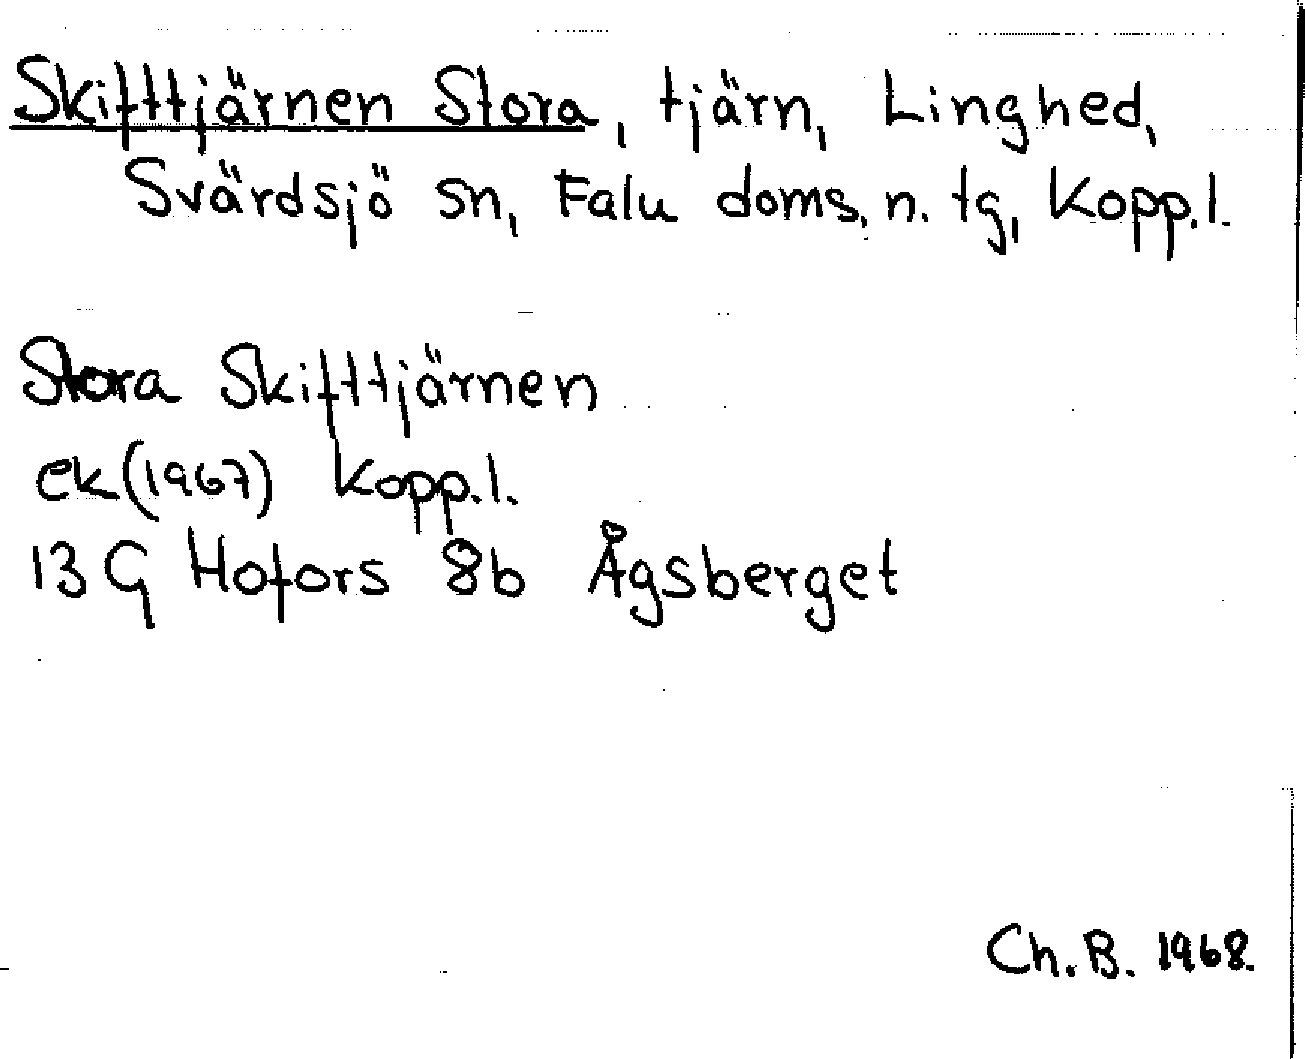 Skifttjärnen Stora, tjärn, Linghed,
Svärdsjö sn, Falu doms. n. tg, Kopp.l.
Stora Skifttjärnen
ek (1967) Kopp.l.
13 G Hofors 8b Ågsberget
Ch. B. 1968.